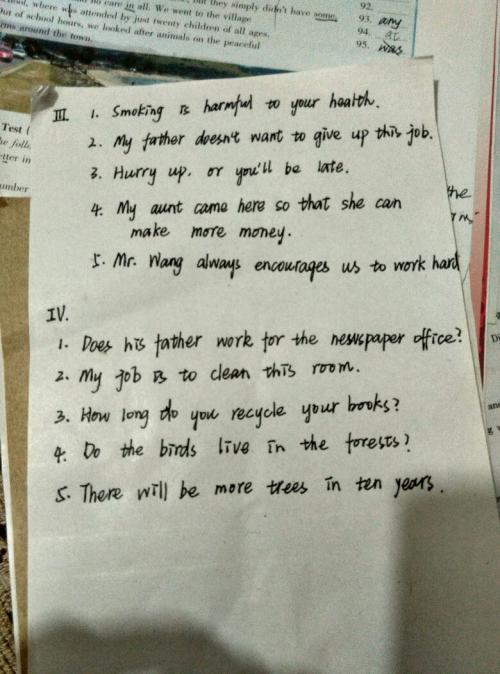 but they simply didn't have some
no care in all. We went to the village
school, where was attended by just twenty children of all ages.
Out of school hours, we looked after animals on the peaceful
around the town.
92.
93. any
94. at
95. was
Test
the
III. 1. Smoking is harmful to your health.
2. My father doesn't want to give up this job.
3. Hurry up, or you'll be late.
4. My aunt came here so that she can
make more money.
5. Mr. Wang always encourages us to work hard
IV.
1. Does his father work for the newspaper office?
2. My job is to clean this room.
3. How long do you recycle your books?
4. Do the birds live in the forests?
5. There will be more trees in ten years.